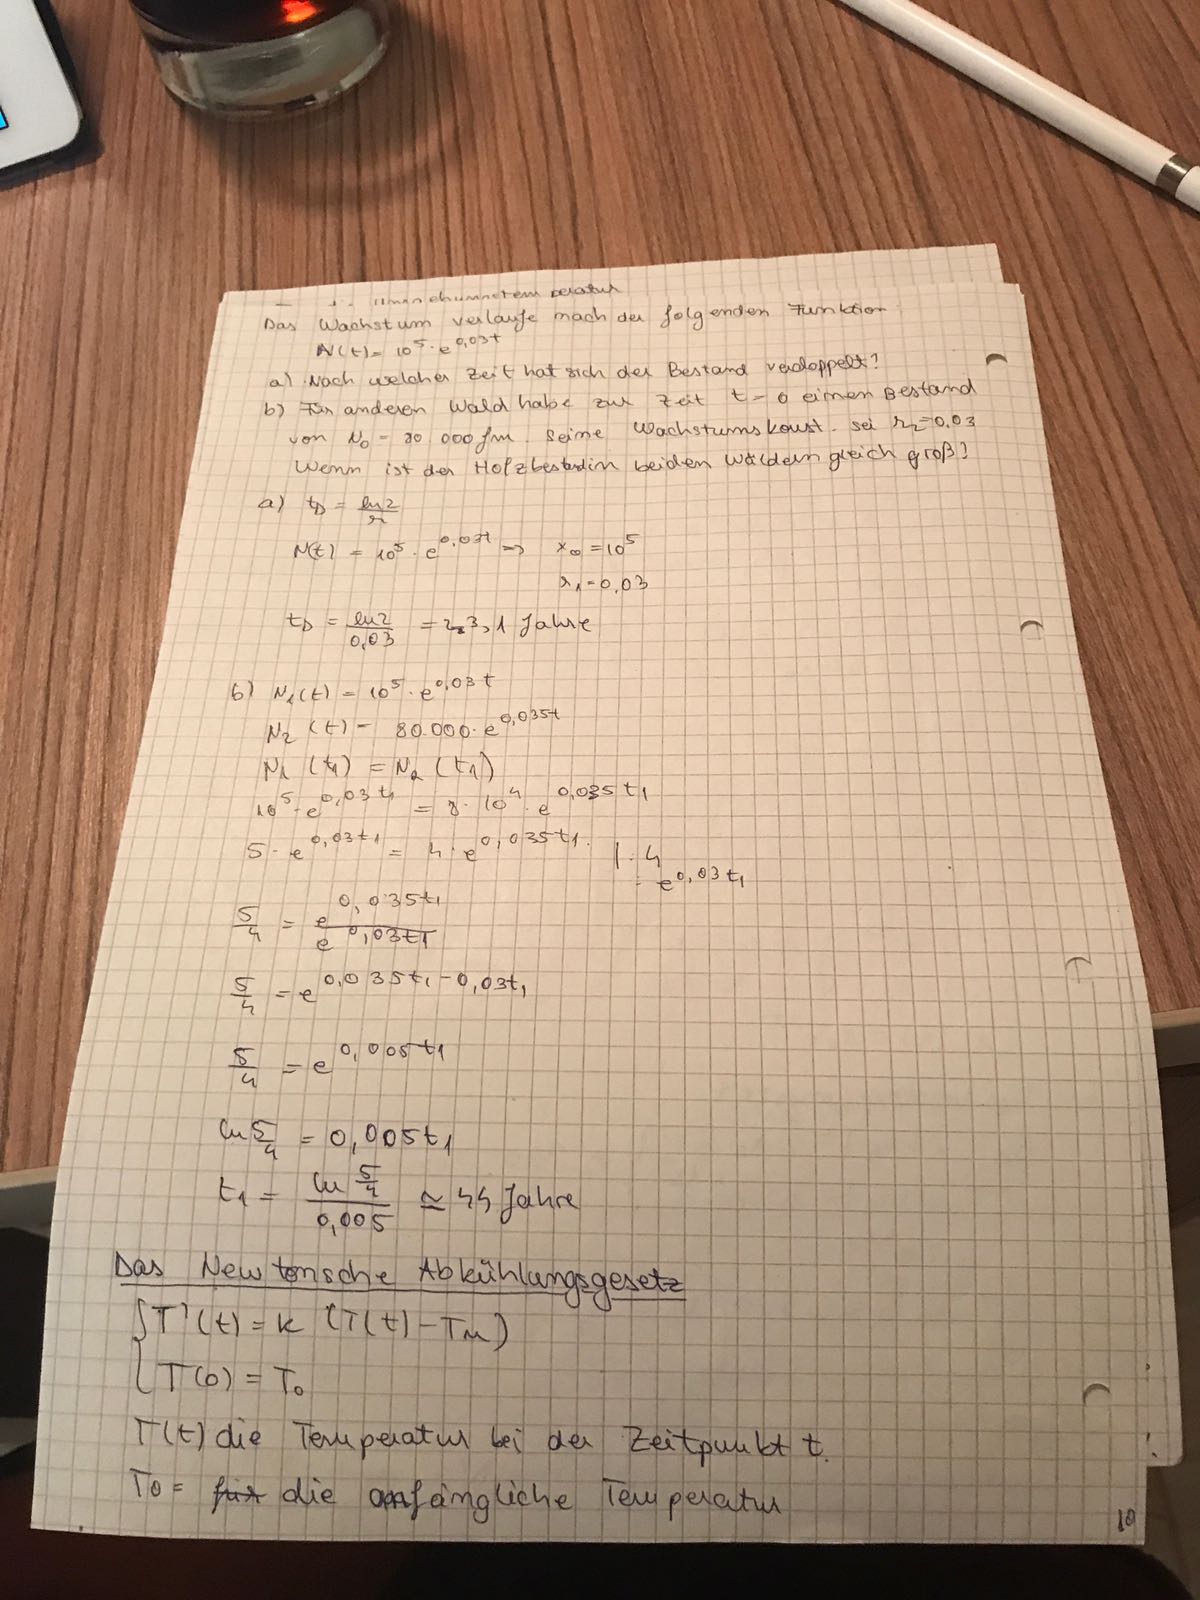 Das Wachstum verlaufe nach der folgenden Funktion
N(t) = 10⁵ · e^0,03t
a) Nach welcher Zeit hat sich der Bestand verdoppelt?
b) Für anderen Wald habe zur Zeit t = 0 einen Bestand
von N₀ = 80 000 fm. Seine Wachstumskonst. sei r₂ = 0,03
Wenn ist der Holzbestand in beiden Wäldern gleich groß?
a) t_D = ln2/r
N(t) = 10⁵ · e^0,03t => x₀ = 10⁵
r₁ = 0,03
t_D = ln2/0,03 = 23,1 Jahre
b) N₁(t) = 10⁵ · e^0,03t
N₂(t) = 80.000 · e^0,035t
N₁(t₁) = N₂(t₁)
10⁵ · e^0,03t₁ = 8 · 10⁴ · e^0,035t₁
5 · e^0,03t₁ = 4 · e^0,035t₁ | : 4
: e^0,03t₁
5/4 = e^0,035t₁ / e^0,03t₁
5/4 = e^0,035t₁ - 0,03t₁
5/4 = e^0,005t₁
ln 5/4 = 0,005t₁
t₁ = ln 5/4 / 0,005 ≃ 44 Jahre
Das Newtonsche Abkühlungsgesetz
{ T'(t) = k (T(t) - Tu)
T(0) = T₀
T(t) die Temperatur bei der Zeitpunkt t.
T₀ = für die anfängliche Temperatur
10